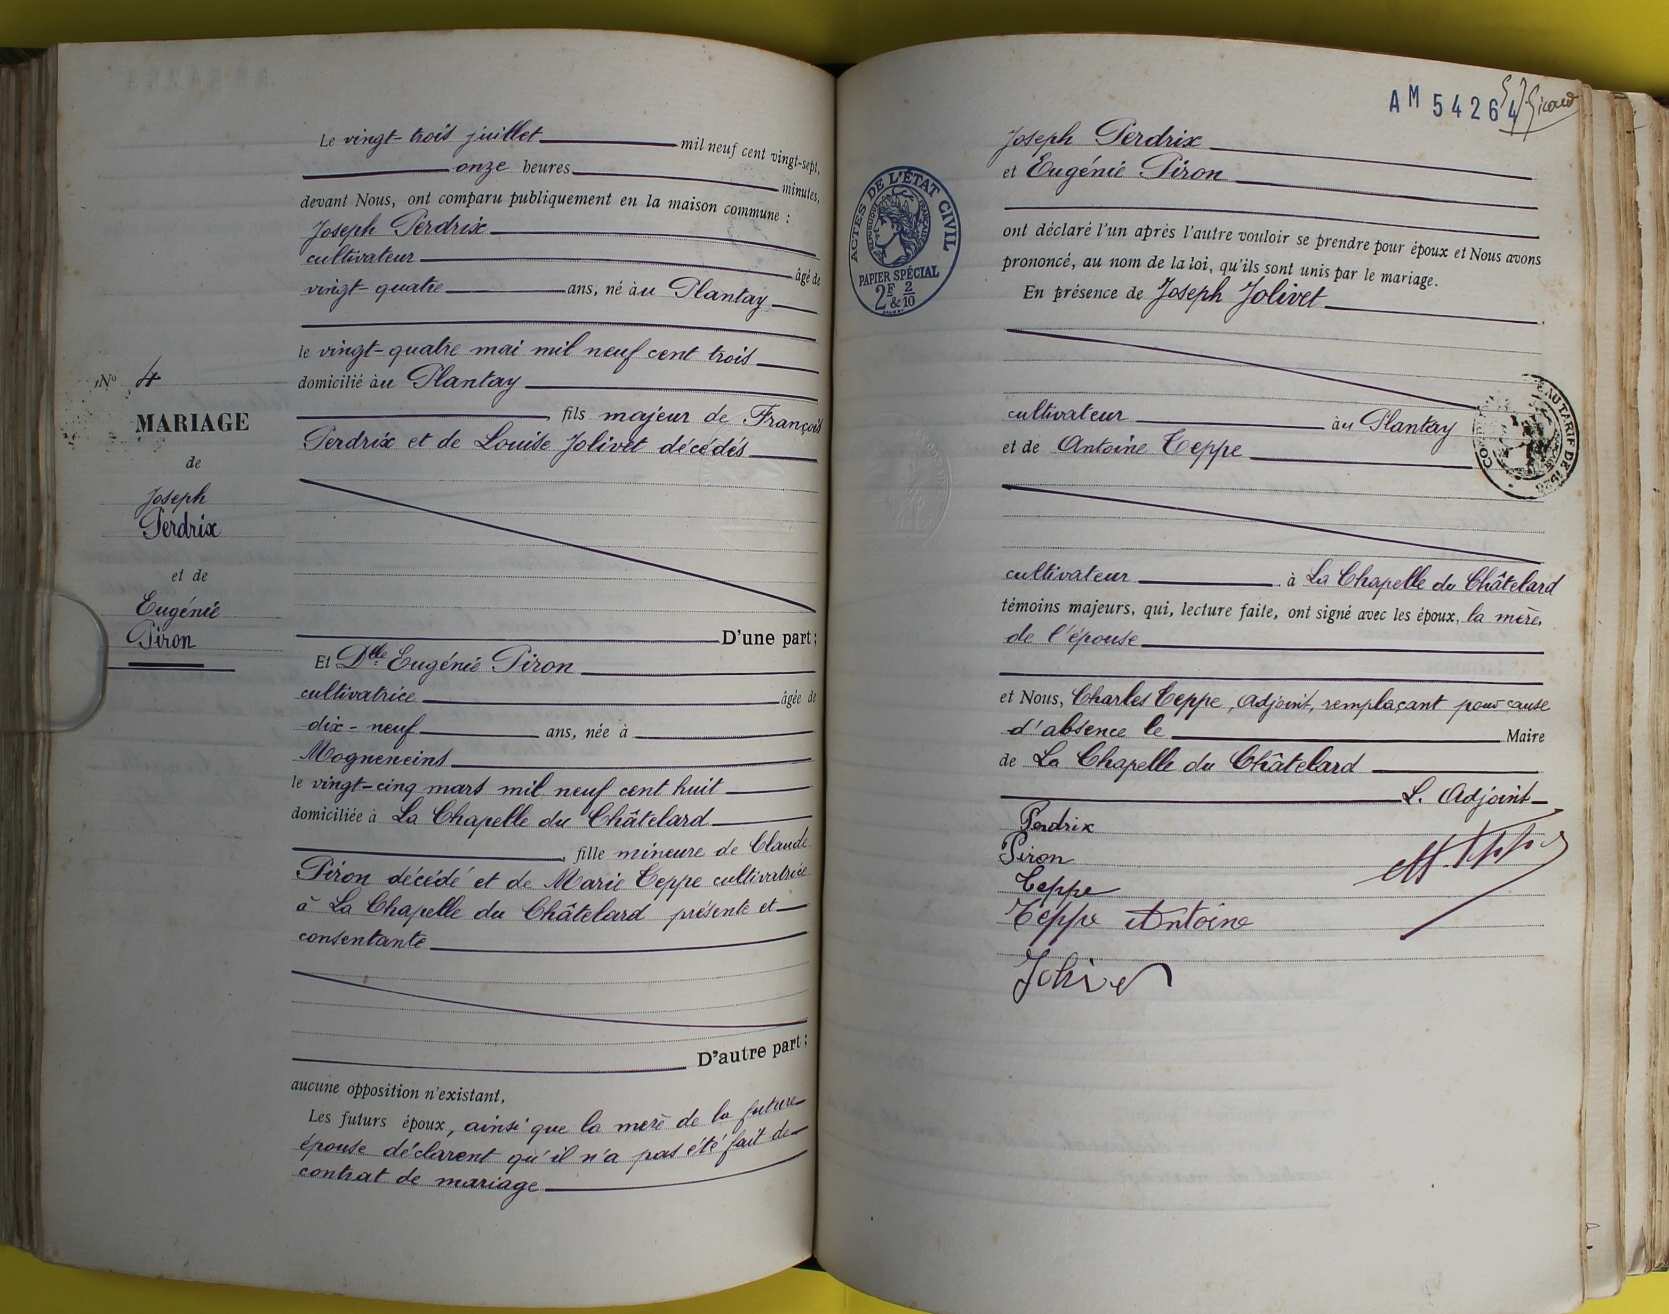 Le vingt-trois juillet mil neuf cent vingt-sept,
onze heures minutes,
devant Nous, ont comparu publiquement en la maison commune :
Joseph Perdrix
cultivateur âgé de
vingt-quatre ans, né au Plantay
le vingt-quatre mai mil neuf cent trois
domicilié au Plantay
fils majeur de François
Perdrix et de Louise Jolivet décédés
N° 4
MARIAGE
de
Joseph
Perdrix
et de
Eugénie
Piron
D'une part ;
Et Dlle Eugénie Piron
cultivatrice âgée de
dix-neuf ans, née à
Mogneneins
le vingt-cinq mars mil neuf cent huit
domiciliée à La Chapelle du Châtelard
fille mineure de Claude
Piron décédé et de Marie Teppe cultivatrice
à La Chapelle du Châtelard présente et
consentante
D'autre part ;
aucune opposition n'existant,
Les futurs époux, ainsi que la mère de la future
épouse déclarent qu'il n'a pas été fait de
contrat de mariage
AM 54264
ACTES DE L'ÉTAT CIVIL
PAPIER SPÉCIAL
2F & 2/10
Joseph Perdrix
et Eugénie Piron
ont déclaré l'un après l'autre vouloir se prendre pour époux et Nous avons
prononcé, au nom de la loi, qu'ils sont unis par le mariage.
En présence de Joseph Jolivet
cultivateur au Plantay
et de Antoine Teppe
cultivateur à La Chapelle du Châtelard
témoins majeurs, qui, lecture faite, ont signé avec les époux, la mère
de l'épouse
et Nous, Charles Teppe, Adjoint, remplaçant pour cause
d'absence le Maire
de La Chapelle du Châtelard
L. Adjoint
Perdrix
Piron
Teppe
Teppe Antoine
Jolivet